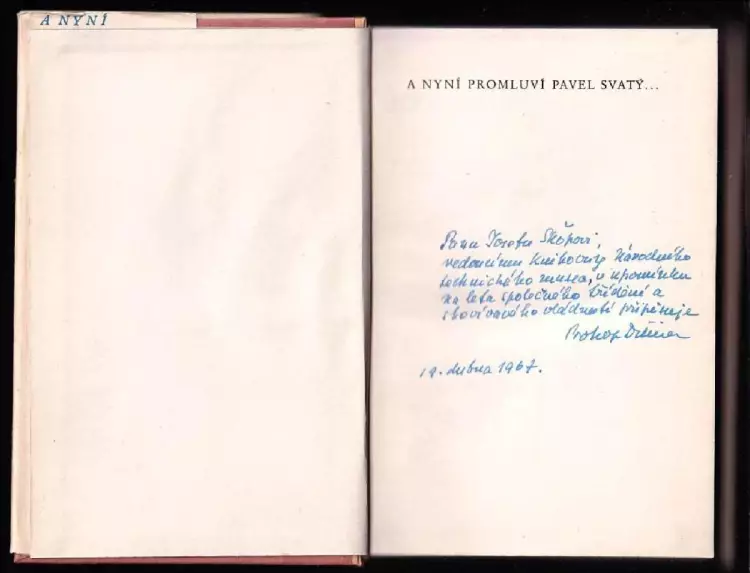 A NYNÍ
A NYNÍ PROMLUVÍ PAVEL SVATÝ...
Panu Josefu Škopovi,
vedoucímu knihovny Národního
technického musea, v upomínku
na léta společného třídění a
připisuje
Prokop
19. dubna 1967.